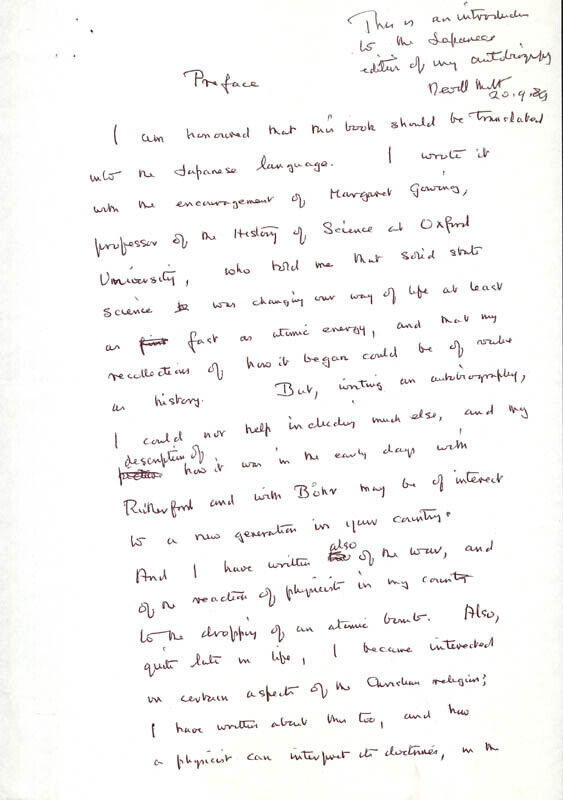 This is an introduction
to the Japanese
edition of my autobiography
Nevill Mott
20.9.89
Preface
I am honoured that this book should be translated
into the Japanese language. I wrote it
with the encouragement of Margaret Gowing,
professor of the History of Science at Oxford
University, who told me that solid state
science was changing our way of life at least
as fast as atomic energy, and that my
recollections of how it began could be of value
as history. But, writing an autobiography,
I could not help including much else, and my
description of
how it was in the early days with
Rutherford and with Böhr may be of interest
to a new generation in your country.
And I have written also of the war, and
of the reaction of physicists in my country
to the dropping of an atomic bomb. Also,
quite late in life, I became interested
in certain aspects of the Christian religion;
I have written about this too, and how
a physicist can interpret its doctrines, in the